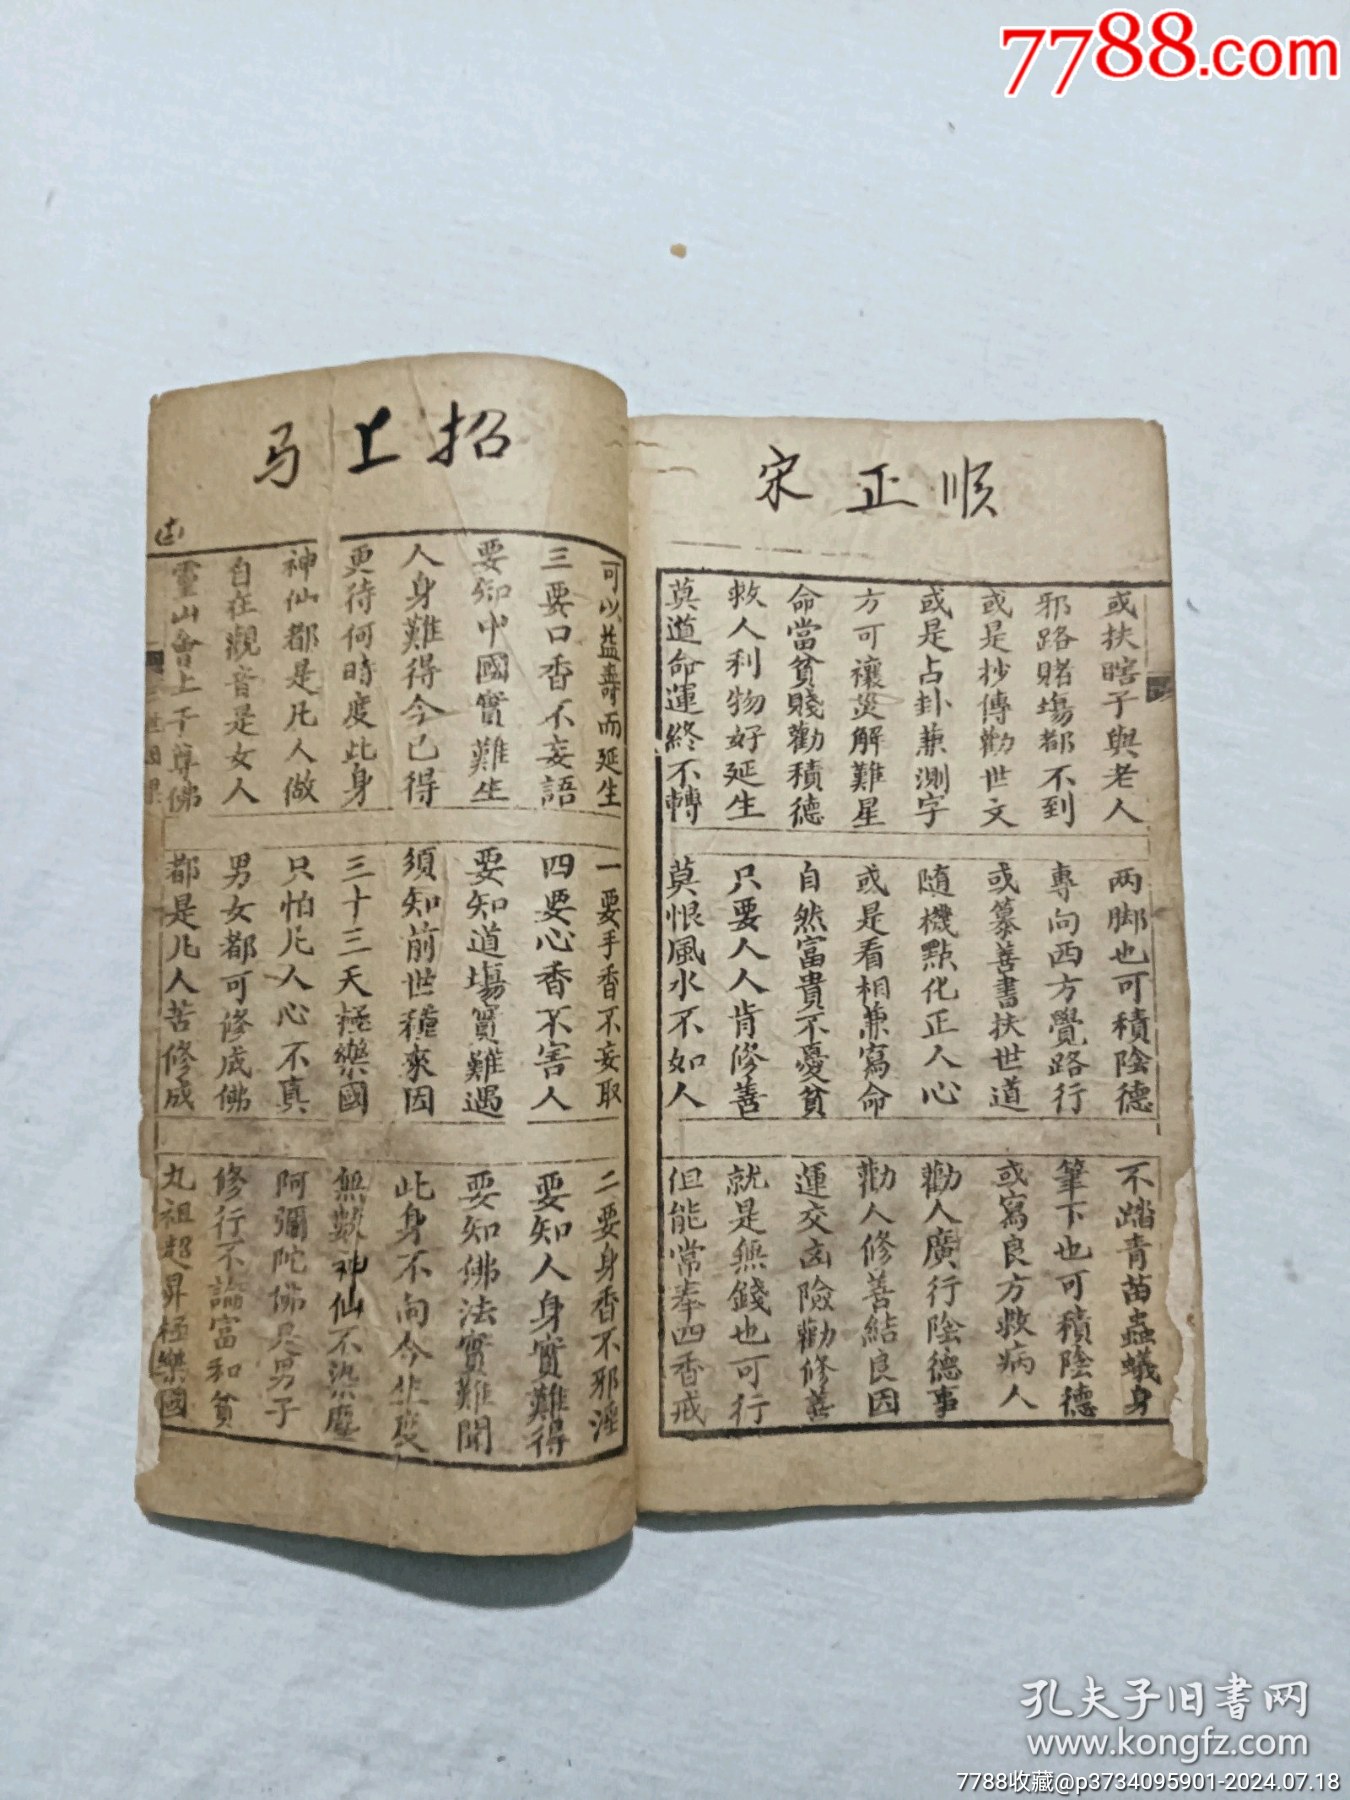 7788.com
宋正顺
或扶瞎子與老人 两脚也可積陰德 不踏青苗蟲蟻身
邪路賭塲都不到 專向西方覺路行 筆下也可積陰德
或是抄傳勸世文 或纂善書扶世道 或寫良方救病人
或是占卦兼測字 隨機點化正人心 勸人廣行陰德事
方可禳災解難星 或是看相兼寫命 勸人修善結良因
命當貧賤勸積德 自然富貴不憂貧 運交凶險勸修善
救人利物好延生 只要人人肯修善 就是無錢也可行
莫道命運終不轉 莫恨風水不如人 但能常奉四香戒
马上招
可以益壽而延生 一要手香不妄取 二要身香不邪淫
三要口香不妄語 四要心香不害人 要知人身實難得
要知中國實難生 要知道塲實難遇 要知佛法實難聞
人身難得今已得 須知前世種來因 此身不向今生度
更待何時度此身 三十三天極樂國 無數神仙不染塵
神仙都是凡人做 只怕凡人心不真 阿彌陀佛是男子
自在觀音是女人 男女都可修成佛 修行不論富和貧
靈山會上千尊佛 都是凡人苦修成 九祖超昇極樂國
三世因果
孔夫子旧書网
www.kongfz.com
7788收藏@p3734095901-2024.07.18